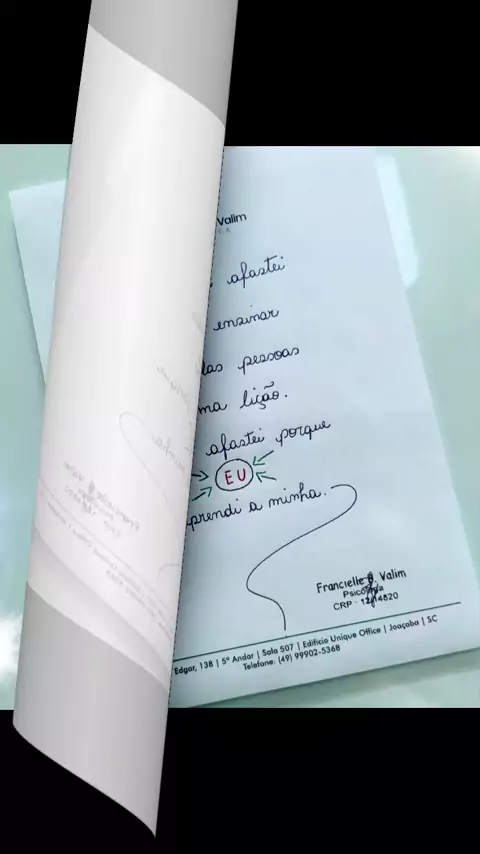 Valim
afastei
ensinar
las pessoas
ma lição.
afastei porque
EU
prendi a minha.
Francielle Valim
Psicóloga
CRP - 12/14820
Edgar, 138 | 5º Andar | Sala 507 | Edifício Unique Office | Joaçaba | SC
Telefone: (49) 99902-5368